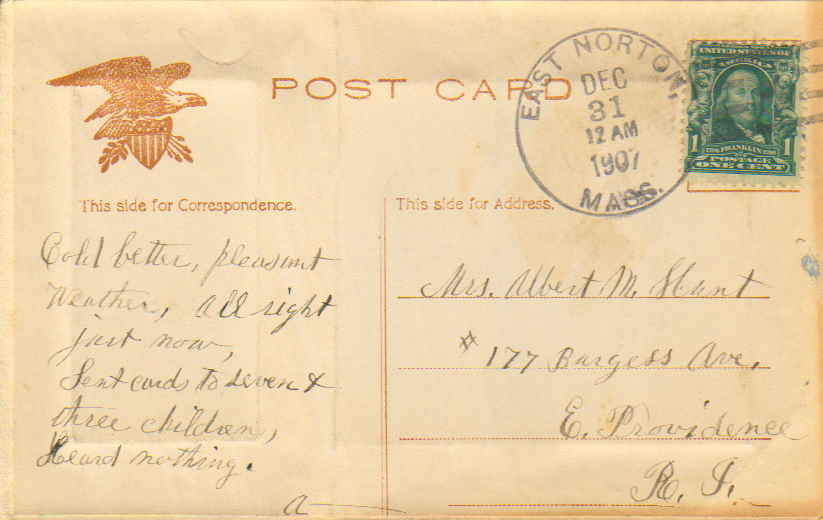 POST CARD
EAST NORTON,
DEC
31
12 AM
1907
MASS.
UNITED STATES OF
AMERICA
1 1
FRANKLIN
POSTAGE
ONE CENT
This side for Correspondence.
Cold better, pleasant
Weather, all right
just now,
Sent cards to seven &
three children,
Heard nothing.
a
This side for Address.
Mrs. Albert M. Hunt
# 177 Burgess Ave,
E. Providence
R. I.